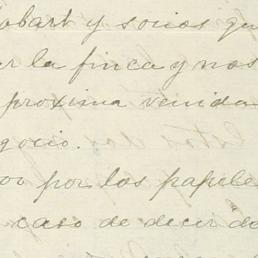 obart y socios qu
ar la finca y nos
proxima venida
gocio.
or por los papele
caso de decir do